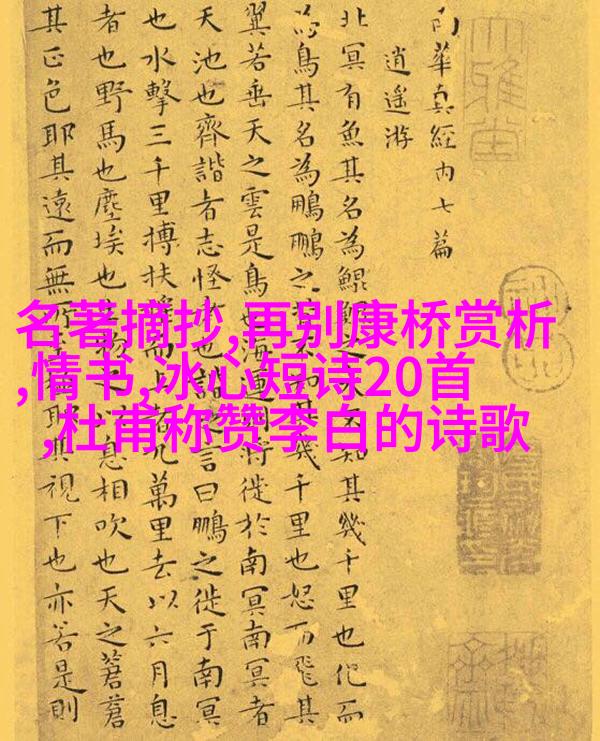 南華真經內七篇
逍遥游
北冥有魚其名為鯤鯤之大不知其幾千里也化而
為鳥其名為鵬鵬之背不知其幾千里也怒而飛其
翼若垂天之雲是鳥也海運則將徙於南冥南冥者
天池也齊諧者志怪者也諧之言曰鵬之徙于南冥
也水擊三千里搏扶搖而上者九萬里去以六月息
者也野馬也塵埃也生物之以息相吹也天之蒼蒼
其正色耶其遠而無所至極耶其視下也亦若是則
大雅堂
名著摘抄,再别康桥赏析
,情书,冰心短诗20首
,杜甫称赞李白的诗歌